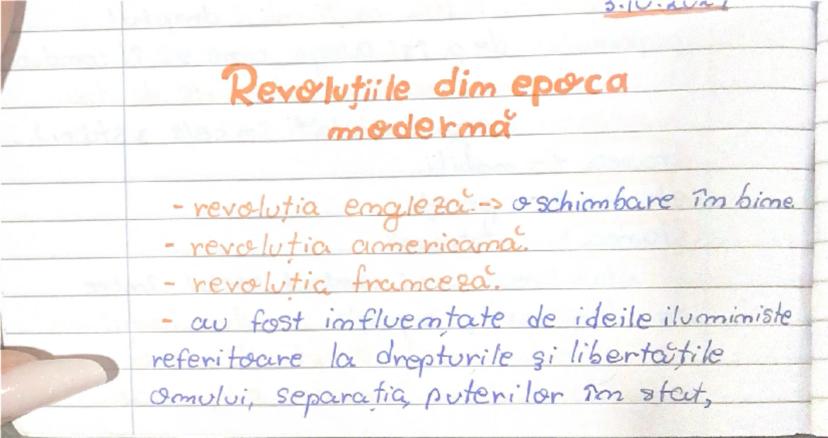 Revoluțiile din epoca
modernă
- revoluția engleză -> o schimbare în bine
- revoluția americană.
- revoluția franceză.
- au fost influențate de ideile iluministe
referitoare la drepturile și libertățile
omului, separația puterilor în stat,